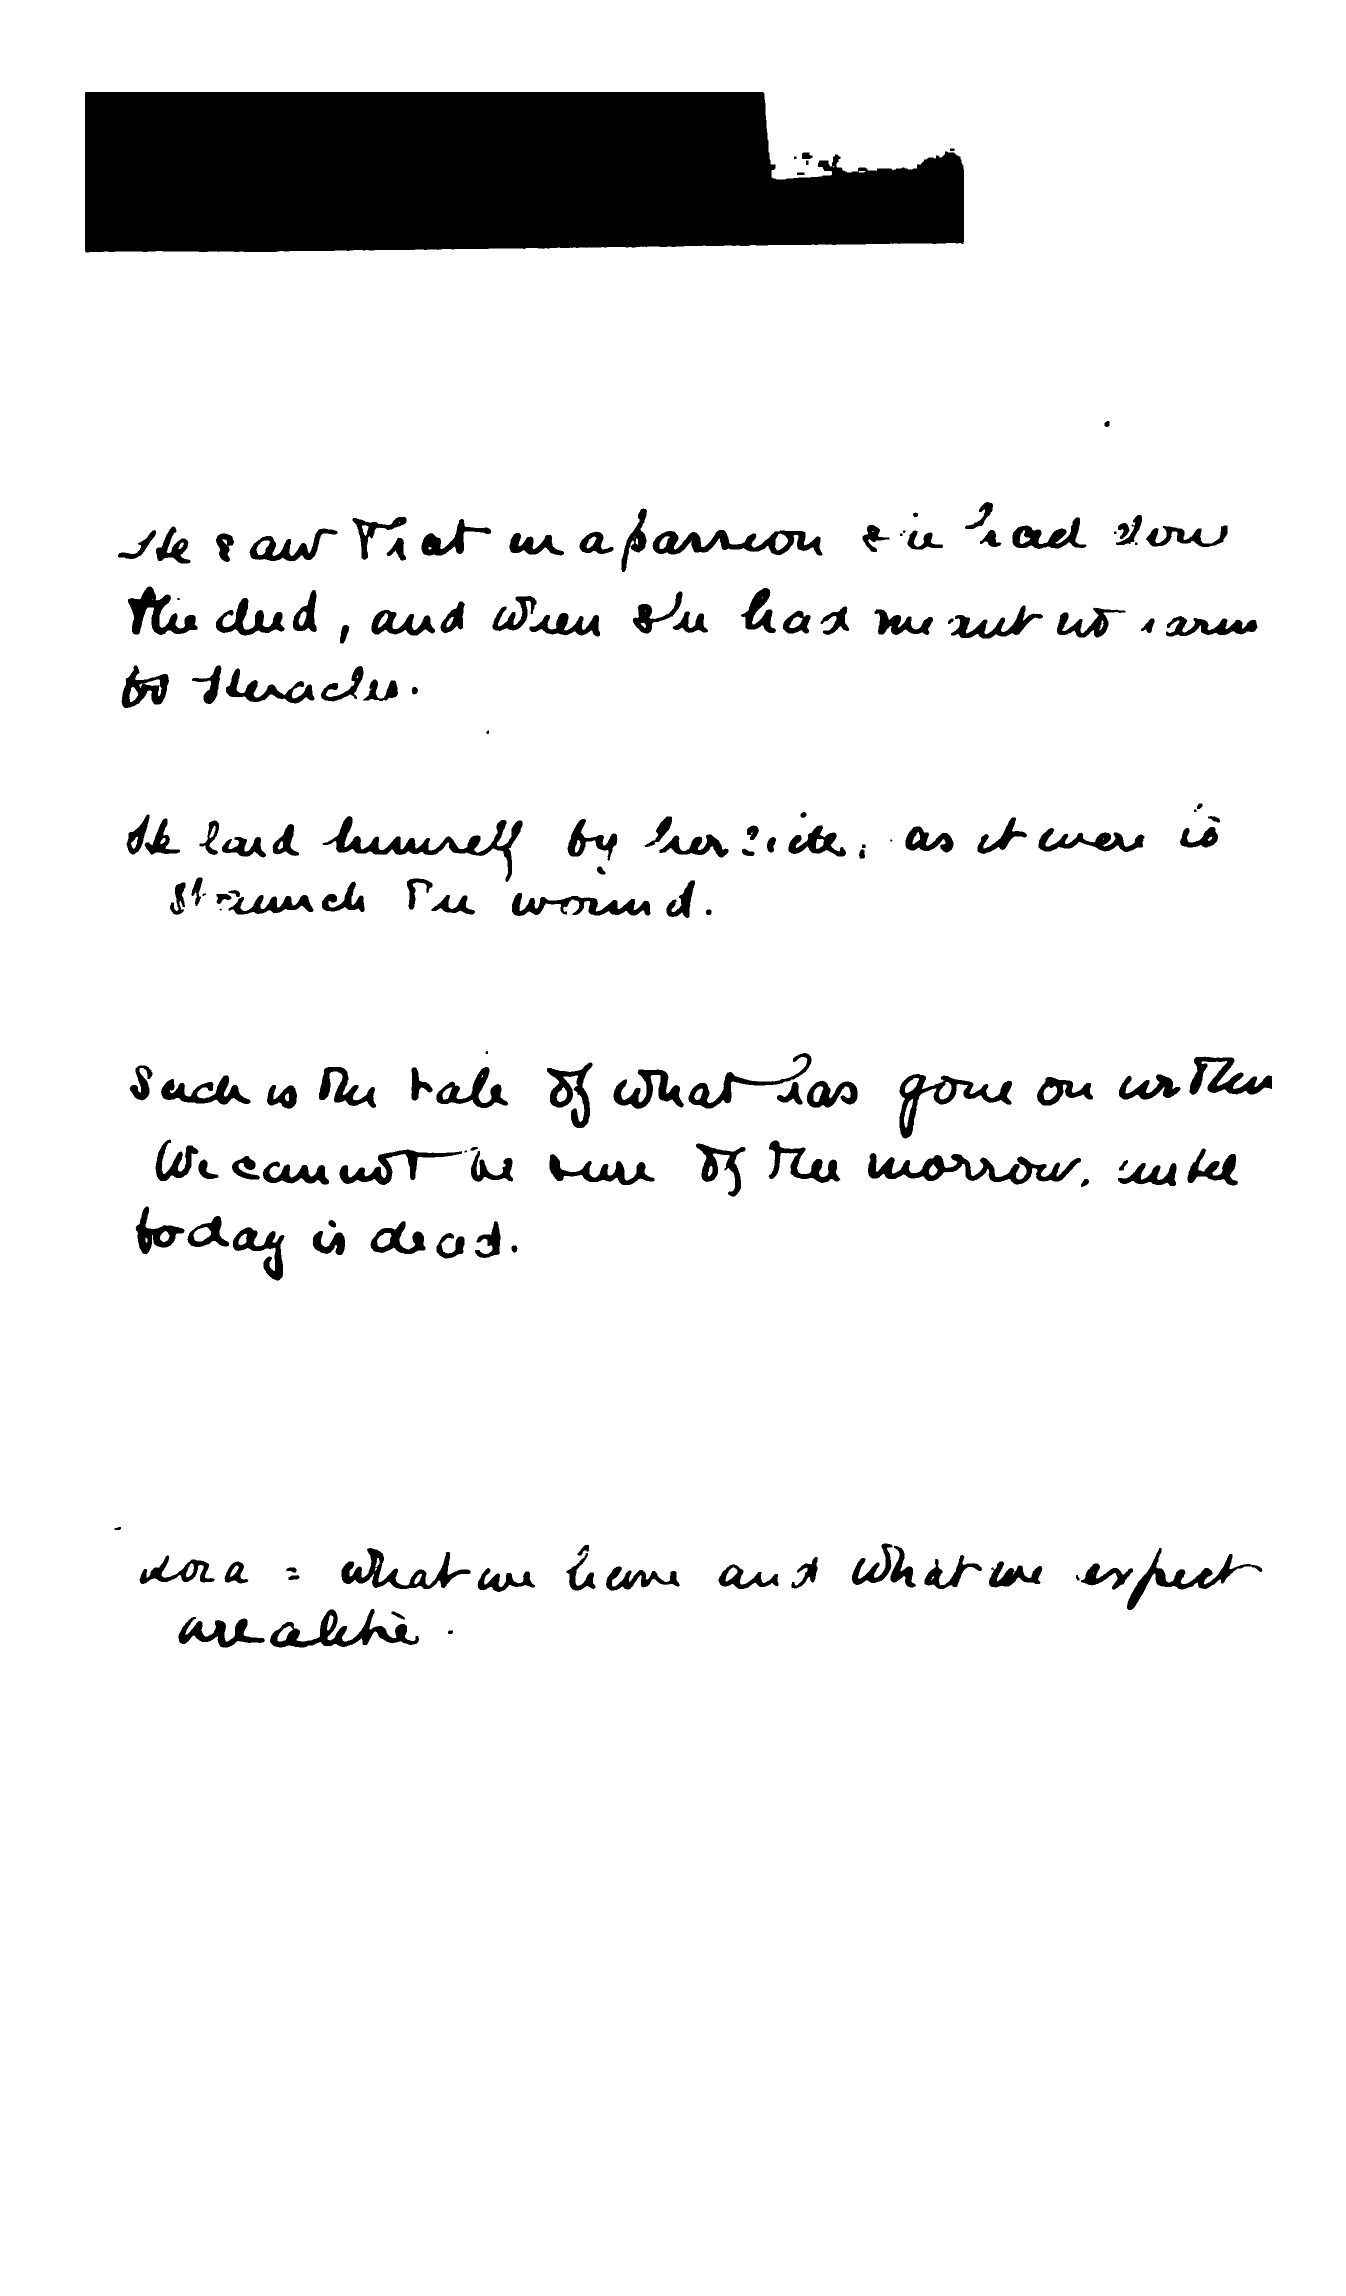 He saw that in a passion she had done
the deed, and when she had meant no harm
to Heracles.
He laid himself by her side, as it were to
staunch the wound.
Such is the tale of what has gone on within
We cannot be sure of the morrow, until
today is dead.
= what we have and what we expect